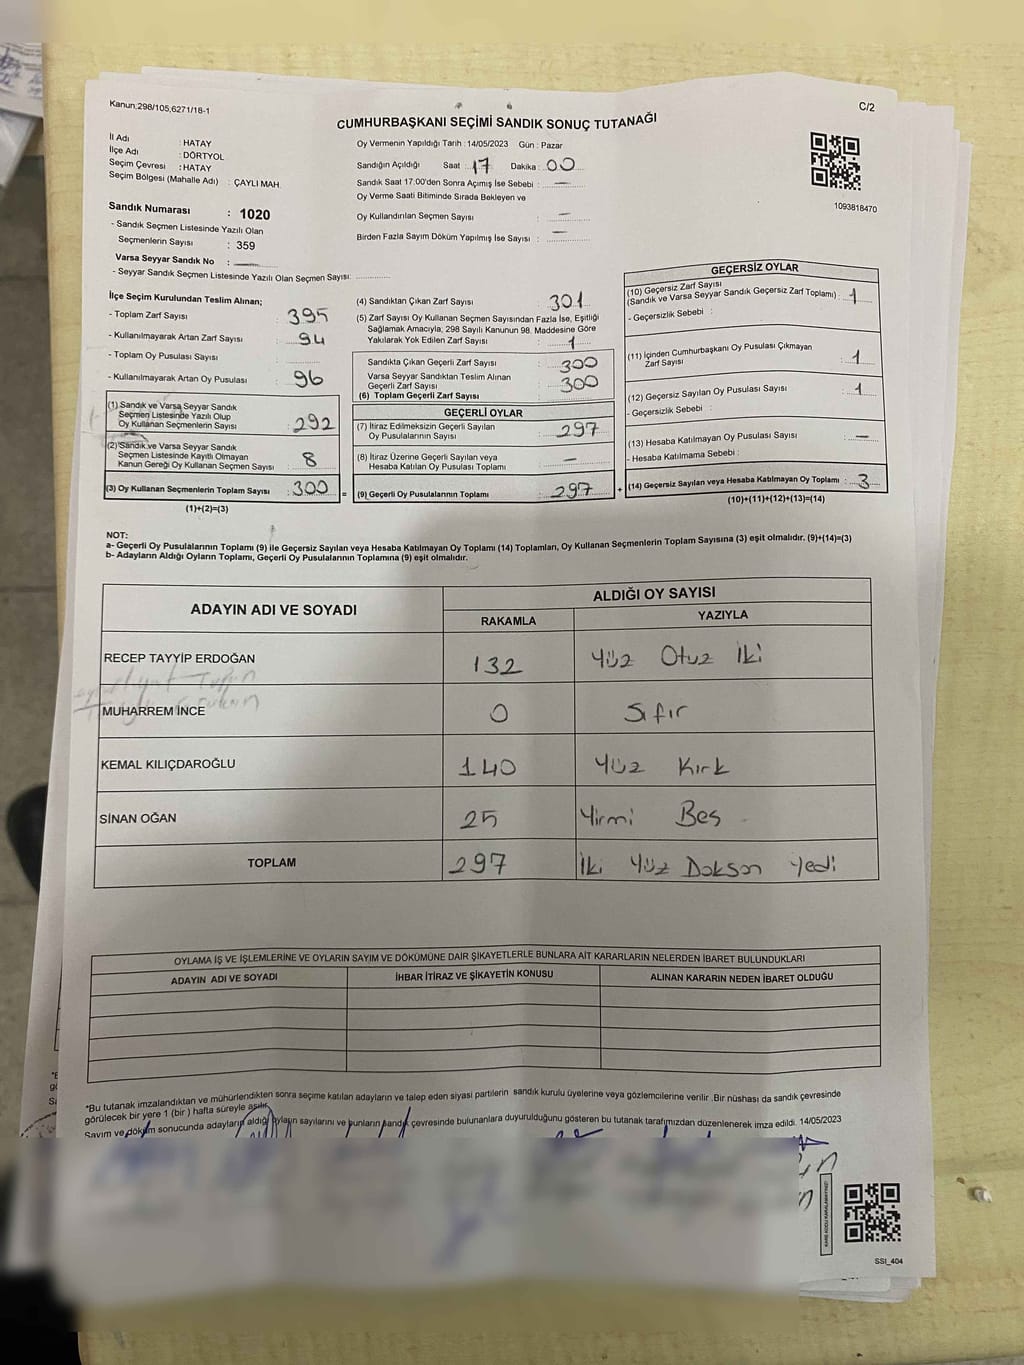 Kanun:298/105,6271/18-1
C/2
CUMHURBAŞKANI SEÇİMİ SANDIK SONUÇ TUTANAĞI
İl Adı : HATAY
İlçe Adı : DÖRTYOL
Seçim Çevresi : HATAY
Seçim Bölgesi (Mahalle Adı) : ÇAYLI MAH.
Oy Vermenin Yapıldığı Tarih : 14/05/2023 Gün : Pazar
Sandığın Açıldığı Saat : 17 Dakika : 00
Sandık Saat 17:00'den Sonra Açımış İse Sebebi : —
Oy Verme Saati Bitiminde Sırada Bekleyen ve
Oy Kullandırılan Seçmen Sayısı : —
Birden Fazla Sayım Döküm Yapılmış İse Sayısı : —
1093818470
Sandık Numarası : 1020
- Sandık Seçmen Listesinde Yazılı Olan
Seçmenlerin Sayısı : 359
Varsa Seyyar Sandık No : —
- Seyyar Sandık Seçmen Listesinde Yazılı Olan Seçmen Sayısı:
İlçe Seçim Kurulundan Teslim Alınan;
- Toplam Zarf Sayısı : 395
- Kullanılmayarak Artan Zarf Sayısı : 94
- Toplam Oy Pusulası Sayısı :
- Kullanılmayarak Artan Oy Pusulası : 96
(1) Sandık ve Varsa Seyyar Sandık
Seçmen Listesinde Yazılı Olup
Oy Kullanan Seçmenlerin Sayısı : 292
(2) Sandık ve Varsa Seyyar Sandık
Seçmen Listesinde Kayıtlı Olmayan
Kanun Gereği Oy Kullanan Seçmen Sayısı : 8
(3) Oy Kullanan Seçmenlerin Toplam Sayısı : 300 =
(1)+(2)=(3)
(4) Sandıktan Çıkan Zarf Sayısı : 301
(5) Zarf Sayısı Oy Kullanan Seçmen Sayısından Fazla İse, Eşitliği
Sağlamak Amacıyla, 298 Sayılı Kanunun 98. Maddesine Göre
Yakılarak Yok Edilen Zarf Sayısı : 1
Sandıkta Çıkan Geçerli Zarf Sayısı : 300
Varsa Seyyar Sandıktan Teslim Alınan
Geçerli Zarf Sayısı : 300
(6) Toplam Geçerli Zarf Sayısı
GEÇERLİ OYLAR
(7) İtiraz Edilmeksizin Geçerli Sayılan
Oy Pusulalarının Sayısı : 297
(8) İtiraz Üzerine Geçerli Sayılan veya
Hesaba Katılan Oy Pusulası Toplamı : —
(9) Geçerli Oy Pusulalarının Toplamı : 297 +
GEÇERSİZ OYLAR
(10) Geçersiz Zarf Sayısı
(Sandık ve Varsa Seyyar Sandık Geçersiz Zarf Toplamı) : 1
- Geçersizlik Sebebi :
(11) İçinden Cumhurbaşkanı Oy Pusulası Çıkmayan
Zarf Sayısı : 1
(12) Geçersiz Sayılan Oy Pusulası Sayısı : 1
- Geçersizlik Sebebi :
(13) Hesaba Katılmayan Oy Pusulası Sayısı : —
- Hesaba Katılmama Sebebi :
(14) Geçersiz Sayılan veya Hesaba Katılmayan Oy Toplamı : 3
(10)+(11)+(12)+(13)=(14)
NOT:
a- Geçerli Oy Pusulalarının Toplamı (9) ile Geçersiz Sayılan veya Hesaba Katılmayan Oy Toplamı (14) Toplamları, Oy Kullanan Seçmenlerin Toplam Sayısına (3) eşit olmalıdır. (9)+(14)=(3)
b- Adayların Aldığı Oyların Toplamı, Geçerli Oy Pusulalarının Toplamına (9) eşit olmalıdır.
ADAYIN ADI VE SOYADI
ALDIĞI OY SAYISI
RAKAMLA YAZIYLA
RECEP TAYYİP ERDOĞAN 132 Yüz Otuz İki
MUHARREM İNCE 0 Sıfır
KEMAL KILIÇDAROĞLU 140 Yüz Kırk
SİNAN OĞAN 25 Yirmi Beş
TOPLAM 297 İki Yüz Doksan Yedi
OYLAMA İŞ VE İŞLEMLERİNE VE OYLARIN SAYIM VE DÖKÜMÜNE DAİR ŞİKAYETLERLE BUNLARA AİT KARARLARIN NELERDEN İBARET BULUNDUKLARI
ADAYIN ADI VE SOYADI İHBAR İTİRAZ VE ŞİKAYETİN KONUSU ALINAN KARARIN NEDEN İBARET OLDUĞU
*Bu tutanak imzalandıktan ve mühürlendikten sonra seçime katılan adayların ve talep eden siyasi partilerin sandık kurulu üyelerine veya gözlemcilerine verilir .Bir nüshası da sandık çevresinde
görülecek bir yere 1 (bir ) hafta süreyle asılır.
Sayım ve döküm sonucunda adayların aldığı oyların sayılarını ve bunların sandık çevresinde bulunanlara duyurulduğunu gösteren bu tutanak tarafımızdan düzenlenerek imza edildi. 14/05/2023
SSI_404